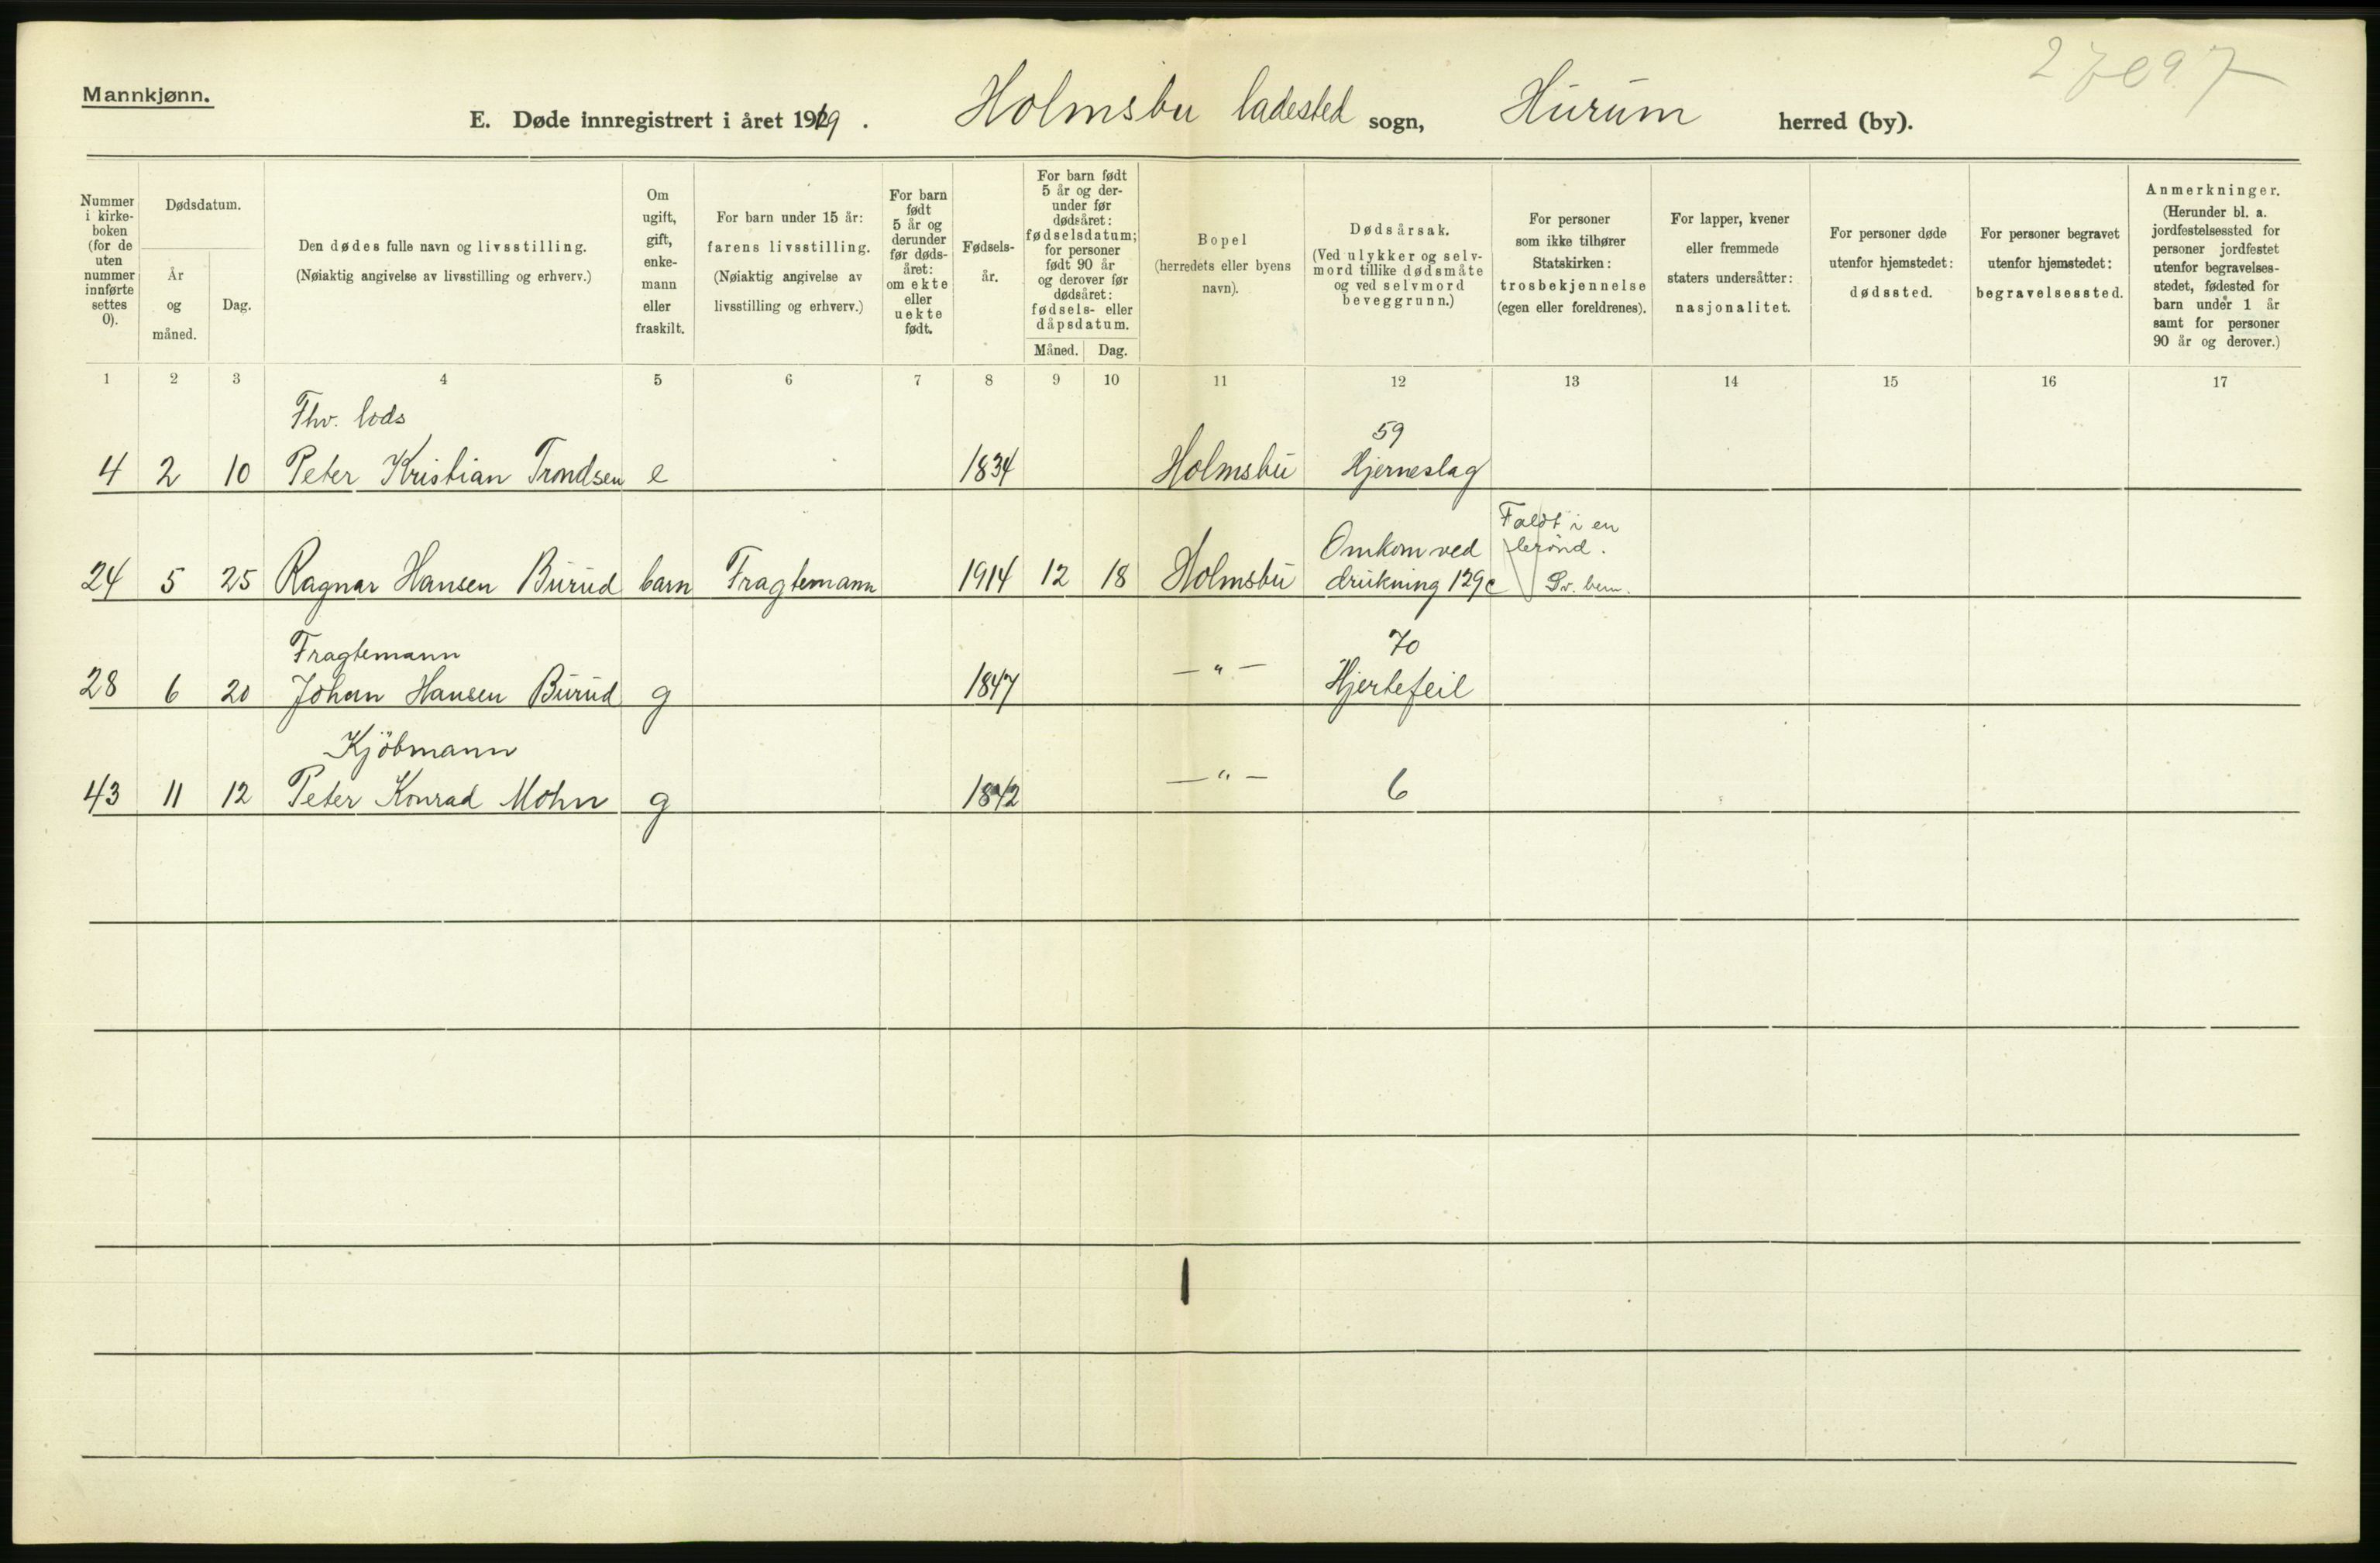 27097
Mannkjønn.
E. Døde innregistrert i året 1919. Holmsbu ladested sogn, Hurum herred (by).
Nummer i kirke-boken (for de uten nummer innførte settes 0).
Dødsdatum.
År og måned.
Dag.
Den dødes fulle navn og livsstilling.
(Nøiaktig angivelse av livsstilling og erhverv.)
Om ugift, gift, enke-mann eller fraskilt.
For barn under 15 år:
farens livsstilling.
(Nøiaktig angivelse av livsstilling og erhverv.)
For barn født 5 år og derunder før døds-året: om ekte eller uekte født.
Fødsels-år.
For barn født 5 år og der-under før dødsåret: fødselsdatum; for personer født 90 år og derover før dødsåret: fødsels- eller dåpsdatum.
Måned. Dag.
Bopel
(herredets eller byens navn).
Dødsårsak.
(Ved ulykker og selv-mord tillike dødsmåte og ved selvmord beveggrunn.)
For personer som ikke tilhører Statskirken: trosbekjennelse (egen eller foreldrenes).
For lapper, kvener eller fremmede staters undersåtter: nasjonalitet.
For personer døde utenfor hjemstedet: dødssted.
For personer begravet utenfor hjemstedet: begravelsessted.
Anmerkninger.
(Herunder bl. a. jordfestelsessted for personer jordfestet utenfor begravelses-stedet, fødested for barn under 1 år samt for personer 90 år og derover.)
1 2 3 4 5 6 7 8 9 10 11 12 13 14 15 16 17
Fhv. lods
59
4 2 10 Peter Kristian Trondsen e 1834 Holmsbu Hjerneslag
Faldt i en
Omkom ved brønd.
24 5 25 Ragnar Hansen Burud barn Fragtemann 1914 12 18 Holmsbu drukning 129c
Fragtemann
70
28 6 20 Johan Hansen Burud g 1847 — " — Hjertefeil
Kjöbmann
43 11 12 Peter Konrad Mohn g 1842 — " — 6